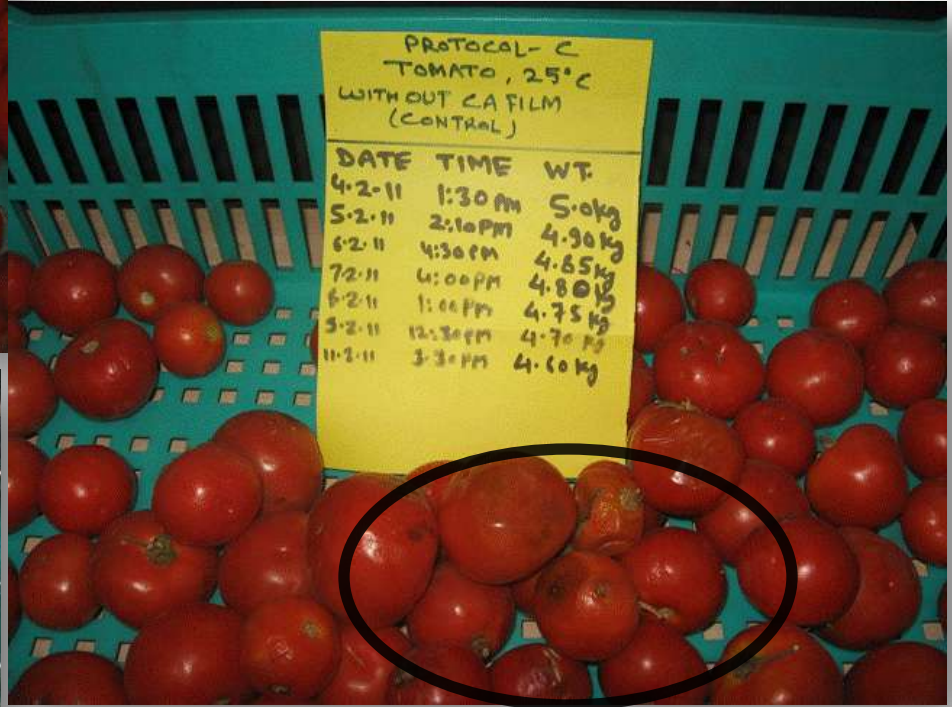 PROTOCOL- C
TOMATO, 25°C
WITHOUT CA FILM
(CONTROL)
DATE TIME WT.
4.2.11 1:30 PM 5.0kg
5.2.11 2:10PM 4.90kg
6.2.11 4:30PM 4.85kg
7.2.11 4:00PM 4.80kg
8.2.11 1:00PM 4.75kg
9.2.11 12:30PM 4.70 kg
11.2.11 3:30PM 4.60kg